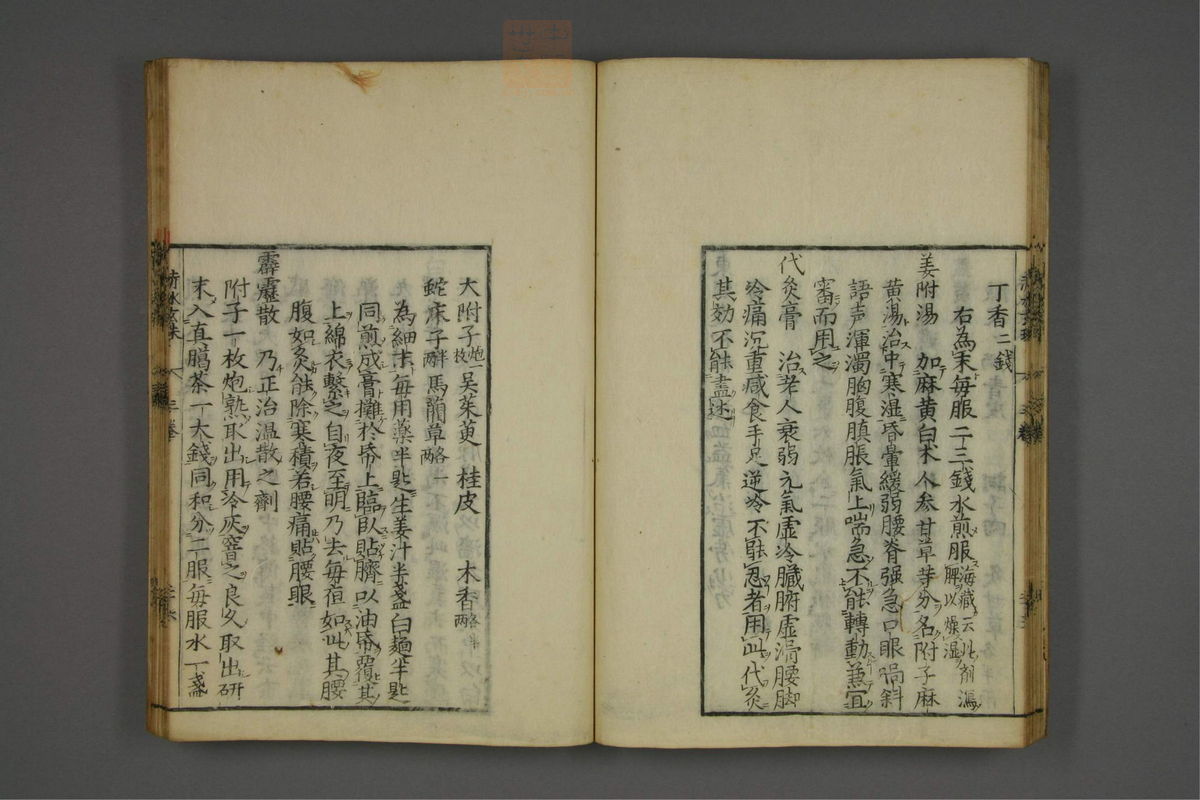 丁香二錢
右為末毎服二三錢水煎服海藏云此剤瀉
脾以燥湿
姜附湯　加麻黄白朮人参甘草等分名附子麻
黄湯治中寒湿昏暈緩弱腰脊强急口眼喎斜
語声渾濁胸腹䐜脹氣上喘急不能轉動兼宜
審而用之
代灸膏　治老人衰弱元氣虚冷臓腑虚滑腰脚
冷痛沉重減食手足逆冷不能忍者用此代灸
其効不能盡述
大附子炮一枚吴茱萸　桂皮　木香各半両
蛇床子半両馬藺草各一両
為細末毎用藥半匙生姜汁半盞白麺半匙
同煎成膏攤於帋上臨臥貼臍以油帋覆其
上綿衣繫之自夜至明乃去毎夜如此其腰
腹如灸能除寒積若腰痛貼腰眼
霹靂散　乃正治温散之劑
附子一枚炮熟取出用冷灰窨之良久取出研
末入真臈茶一大錢同和分二服毎服水一盞
三卷